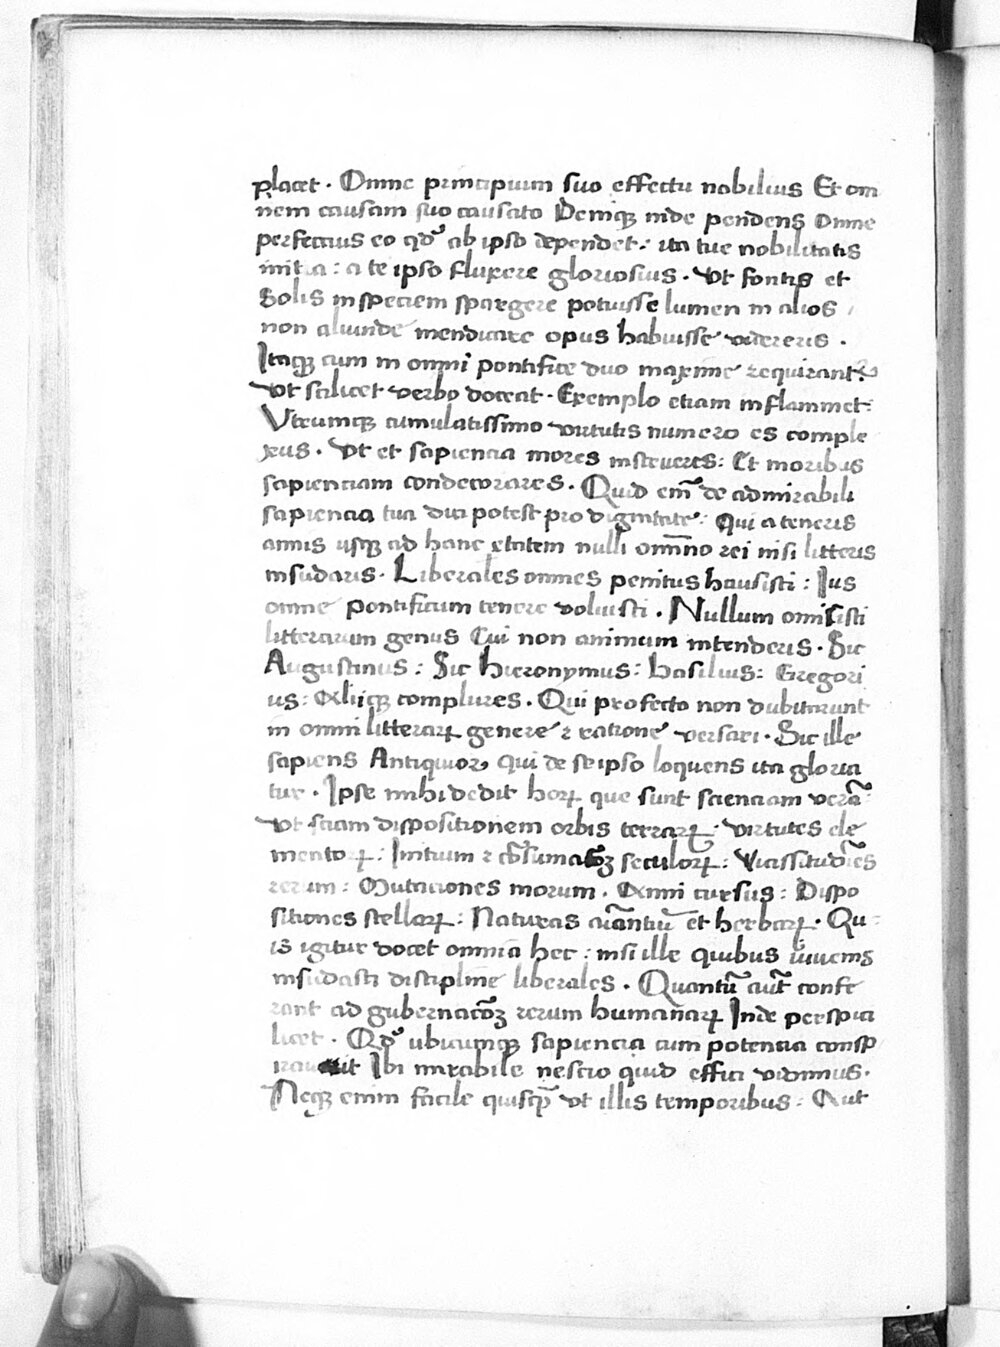 placet . Omne principium suo effectu nobilius Et om
nem causam suo causato Deniqꝫ inde pendens omne
perfectius eo qđ ab ipso dependet : ita tue nobilitatis
initia : a te ipso fluxere gloriosius . Ut fontis et
Solis in speciem spargere potuisse lumen in alios /
non aliunde mendicare opus habuisse videreris .
Itaqꝫ cum in omni pontifice duo maxime requirant᷑
Ut scilicet verbo doceat . Exemplo etiam inflammet :
Utrumqꝫ cumulatissimo virtutis numero es comple
xus . Ut et sapiencia mores instrueres : Et moribus
sapienciam condecorares . Quid em̄ de admirabili
sapiencia tua dici potest pro dignitate : Qui a teneris
annis usqꝫ ad hanc etatem nulli omīno rei nisi litteris
insudaris . Liberales omnes penitus hausisti : Ius
omne pontificum tenere voluisti . Nullum omisisti
litterarum genus Cui non animum intenderis . Sic
Augustinus : Sic hieronymus : basilius : Gregori
us : Aliiqꝫ complures . Qui profecto non dubitarunt
in omni litterarꝝ genere ⁊ ratione versari . Sic ille
sapiens Antiquior, qui de se ipso loquens ita gloria
tur . Ipse mihi dedit horꝝ que sunt scienciam verā :
Ut sciam dispositionem orbis terrarꝝ : virtutes ele
mentorꝝ : Initium ⁊ cōsumacōꝫ seculorꝝ : Vicissitudīes
rerum : Mutaciones morum . Anni cursus : Dispo
sitiones stellarꝝ : Naturas aīantiū et herbarꝝ . Qu=
is igitur docet omnia hec : nisi ille quibus
insudasti discipline liberales . Quantū aūt confe
rant ad gubernacōꝫ rerum humanarꝝ Inde perspici
licet . Qđ ubicumqꝫ sapiencia cum potentia consp
irauit Ibi mirabile nescio quid effici vidimus .
Neqꝫ enim facile quisqꝫ̄ ut illis temporibus : Aut